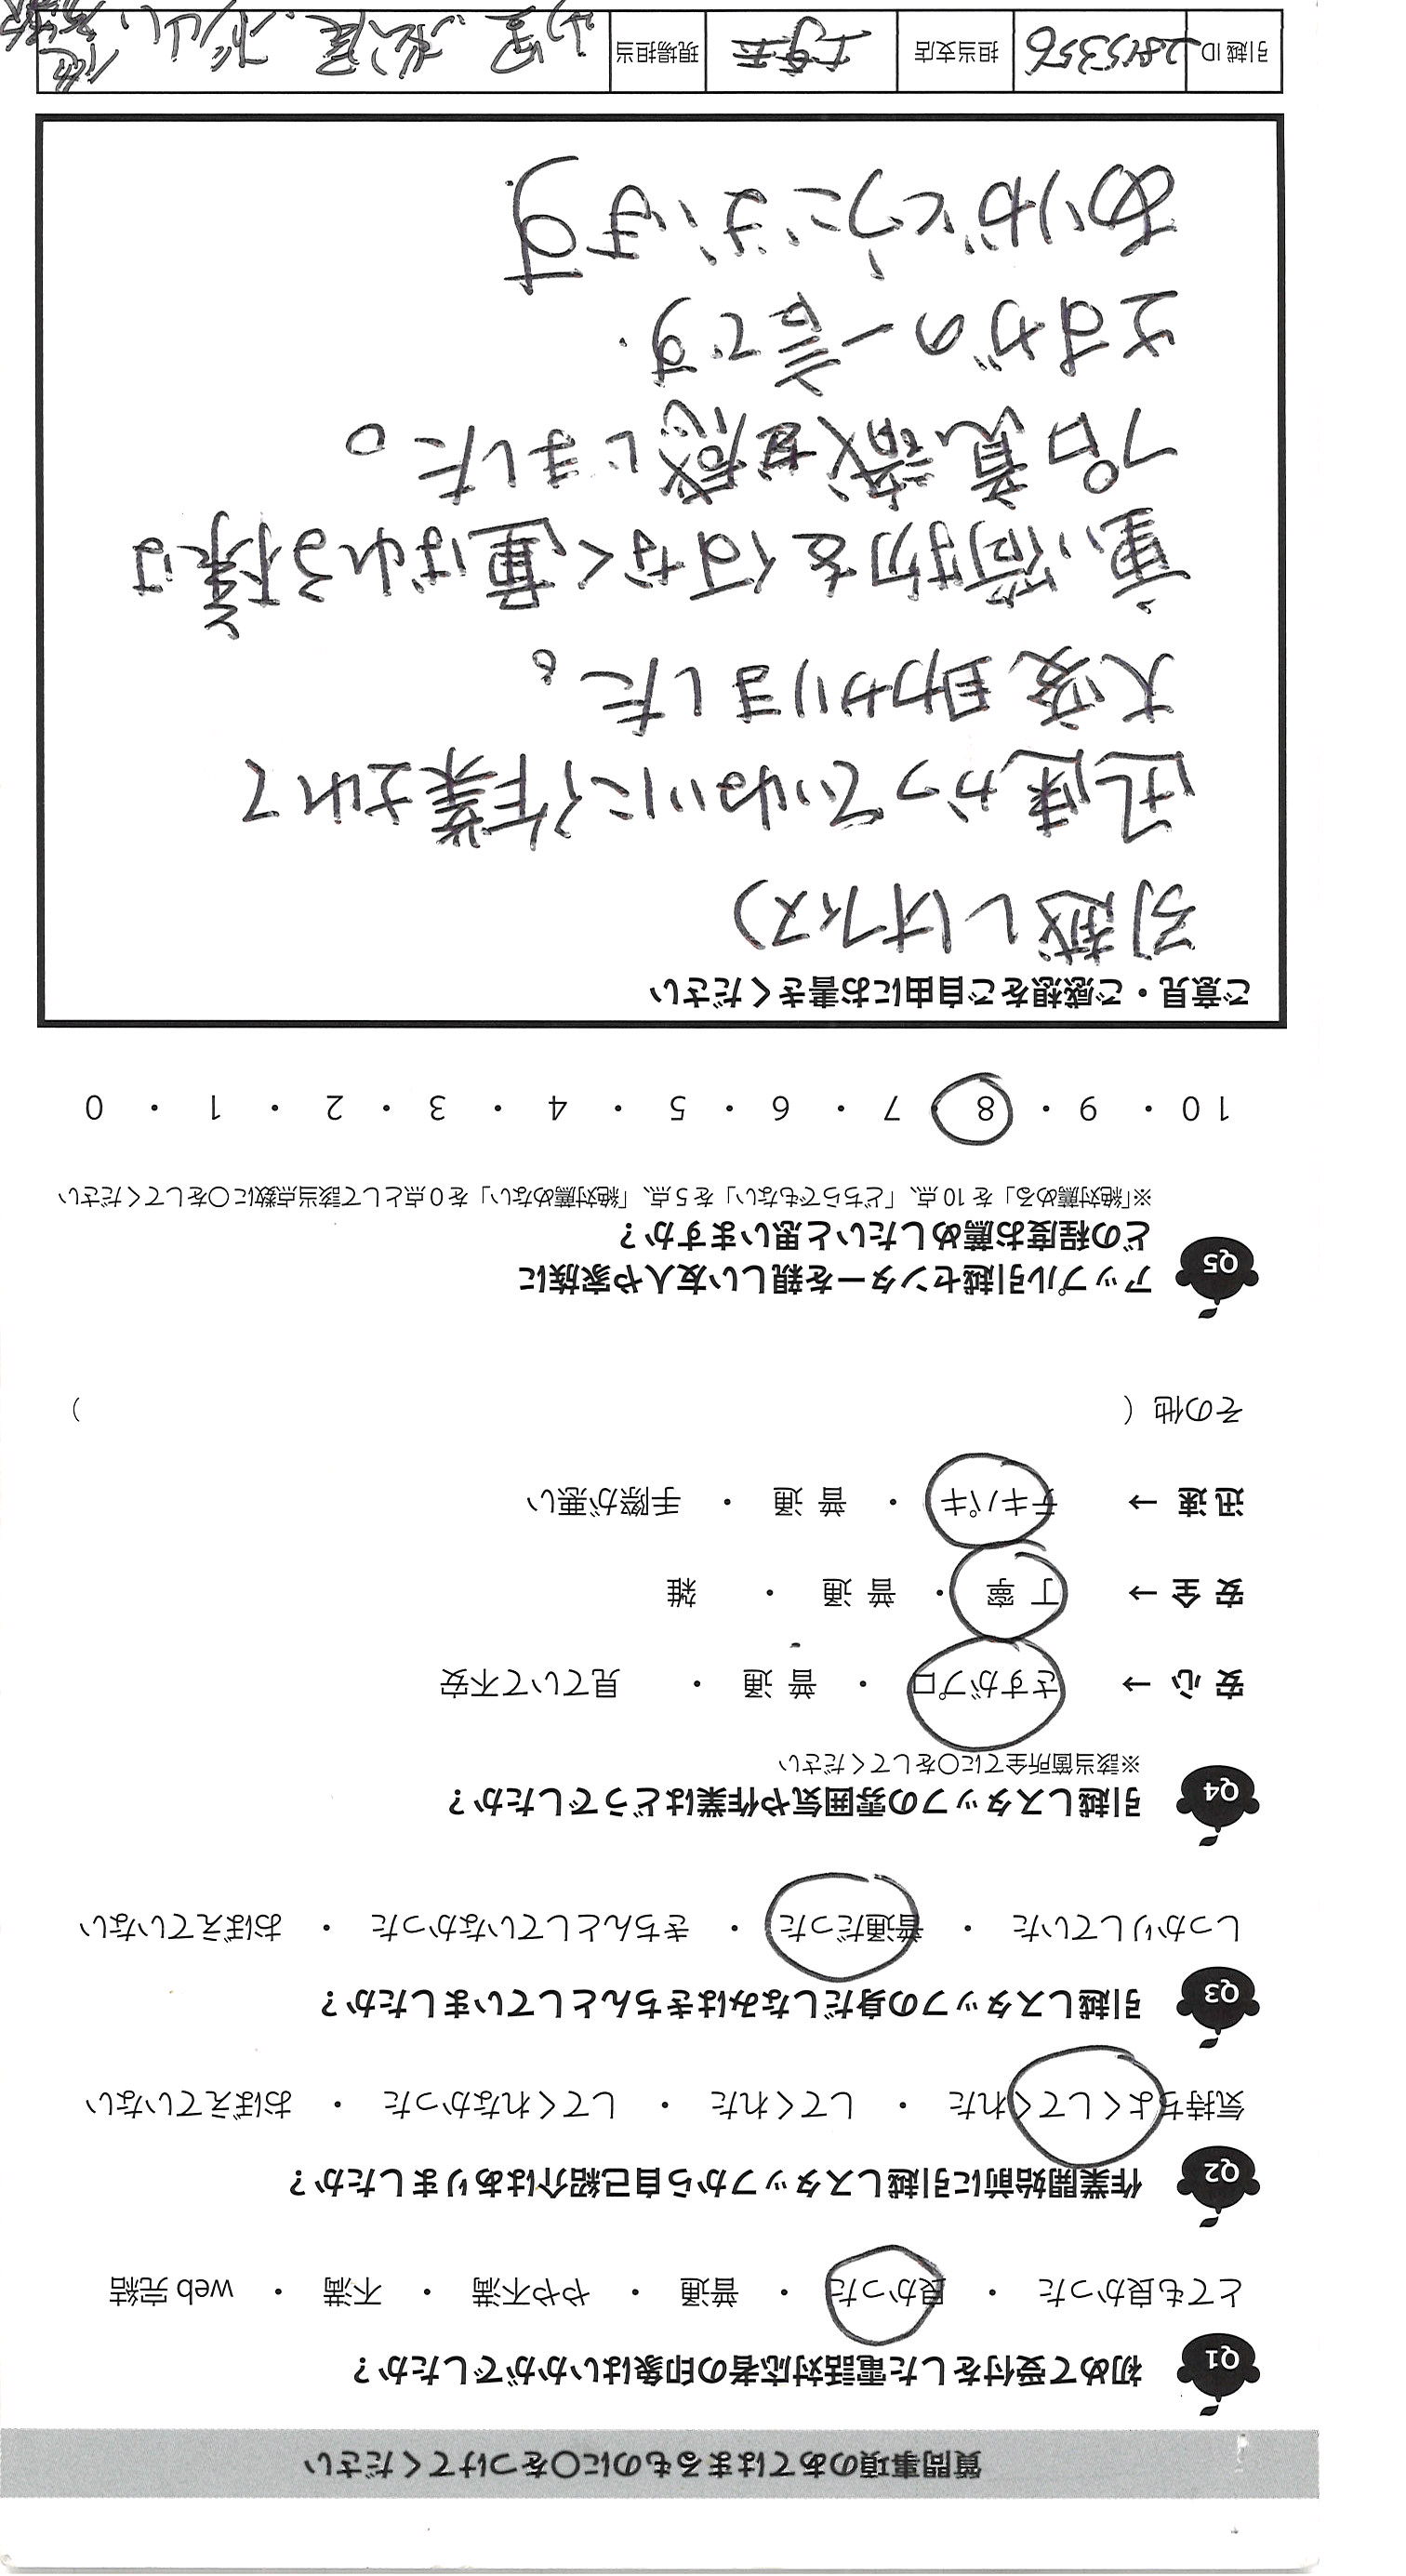 質問事項のあてはまるものに〇をつけてください
Q1 初めて受付をした電話対応者の印象はいかがでしたか？
とても良かった ・ 良かった ・ 普通 ・ やや不満 ・ 不満 ・ web 完結
Q2 作業開始前に引越しスタッフから自己紹介はありましたか？
気持ちよくしてくれた ・ してくれた ・ してくれなかった ・ おぼえていない
Q3 引越しスタッフの身だしなみはきちんとしていましたか？
しっかりしていた ・ 普通だった ・ きちんとしていなかった ・ おぼえていない
Q4 引越しスタッフの雰囲気や作業はどうでしたか？
※該当箇所全てに〇をしてください
安心 → さすがプロ ・ 普通 ・ 見ていて不安
安全 → 丁寧 ・ 普通 ・ 雑
迅速 → テキパキ ・ 普通 ・ 手際が悪い
その他 （ ）
Q5 アップル引越センターを親しい友人や家族に
どの程度お薦めしたいと思いますか？
※「絶対薦める」を 10 点、「どちらでもない」を 5 点、「絶対薦めない」を 0 点として該当点数に〇をしてください
10 ・ 9 ・ 8 ・ 7 ・ 6 ・ 5 ・ 4 ・ 3 ・ 2 ・ 1 ・ 0
ご意見・ご感想をご自由にお書きください
引越し(オフィス)
迅速かつていねいに作業されて
大変助かりました。
重い荷物を何なく運ばれる様は
プロ意識を感じました。
さすがの一言です.
ありがとうございます
引越 ID 2815356 担当支店 現場担当